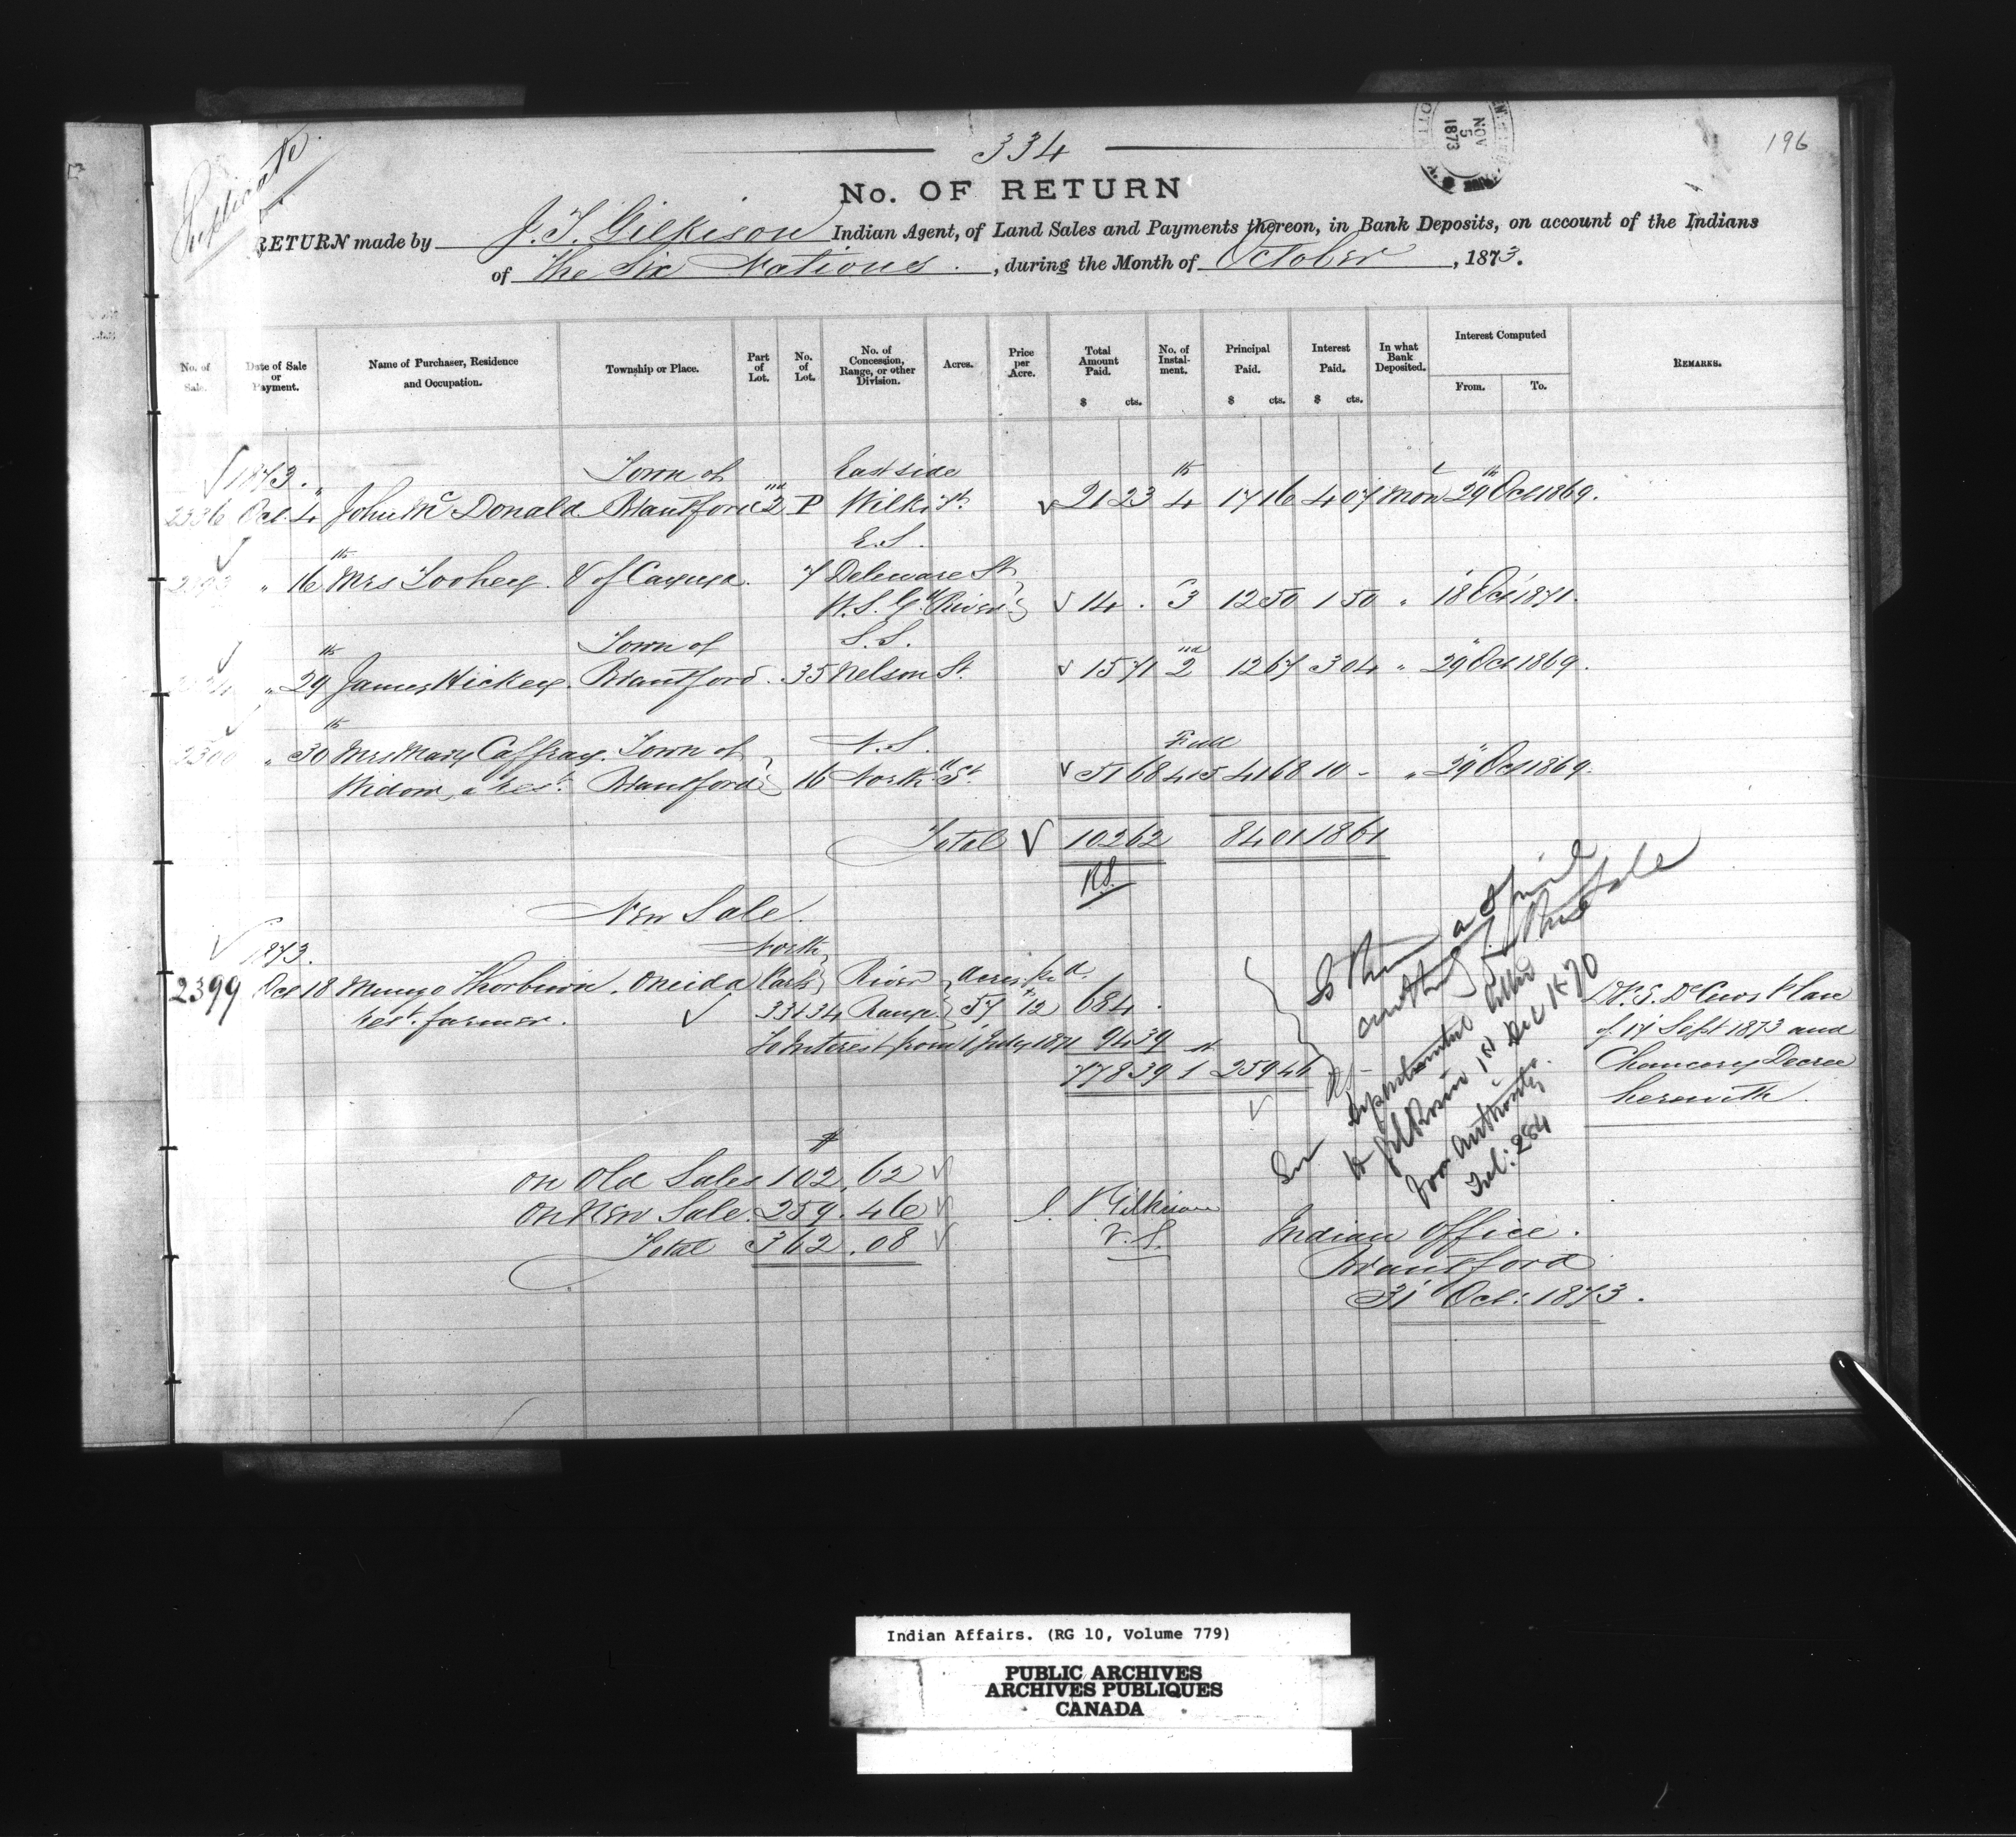 334
196
NOV
5
1873
Duplicate
No. OF RETURN
RETURN made by J. T. Gilkison Indian Agent, of Land Sales and Payments thereon, in Bank Deposits, on account of the Indians
of The Six Nations. , during the Month of October , 1873.
No. of Sale. Date of Sale or Payment. Name of Purchaser, Residence and Occupation. Township or Place. Part of Lot. No. of Lot. No. of Concession, Range, or other Division. Acres. Price per Acre. Total Amount Paid. $ cts. No. of Instal- ment. Principal Paid. $ cts. Interest Paid. $ cts. In what Bank Deposited. Interest Computed From. To. REMARKS.
1873. Town of East side
2336 Oct. 4 John McDonald Brantford 2 P Wilkis St. 21 23 4th 17 16 4 07 Mon 29th Oct 1869.
E.S.
" 16th Mrs Toohey. V of Cayuga. 7 Deleware St
W.S. Gd River 14 . 3 12 50 1 50 " 18 Oct 1871.
Town of S.S.
" 29th James Hickey. Brantford. 35 Nelson St. 15 71 2nd 12 67 3 04 " 29 Oct 1869.
N.S. Full
2300 " 30th Mrs Mary Caffray. Town of
Widow, a Rest. Brantford 16 North St 51 68 4 15 41 68 10 - " 29 Oct 1869.
Total 102 62 84 01 18 61
R.S.
New Sale.
1873. North
2399 Oct 18 Mungo Thorburn. Oneida Parts River acres
Rest. farmer. 33 & 34 Range 57 12 684 .
To Interest from 1 July 1871 94 39
778 39 1st 259 46
Is there a Special
authority for this sale
See Departmental letter
to Gilkison 1st Dec 1870
for authority.
Fol: 284
D. S. DeCews Plan
of 17 Sept 1873 and
Chancery Decree
herewith.
$
On Old Sales 102. 62
On New Sale. 259. 46
Total 362. 08
J. T. Gilkison
V. S.
Indian Office.
Brantford
31 Oct: 1873.
Indian Affairs. (RG 10, Volume 779)
PUBLIC ARCHIVES
ARCHIVES PUBLIQUES
CANADA